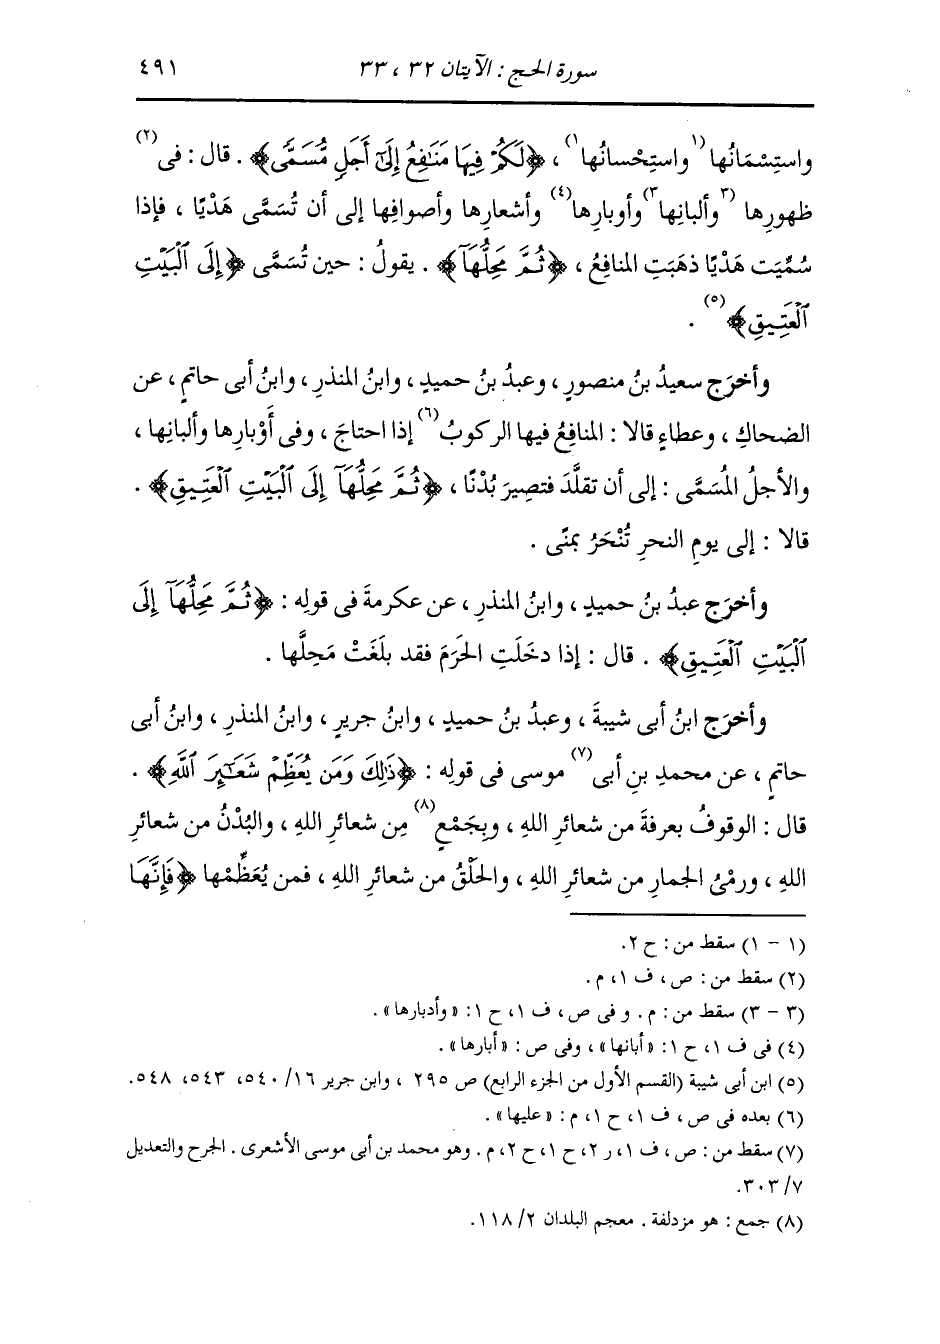 سورة الحج : الآيتان ٣٢ ، ٣٣
٤٩١
واستِسْمَانُها (١ واستِحْسانُها ١) ، ﴿لَكُمْ فِيهَا مَنَٰفِعُ إِلَىٰٓ أَجَلٍ مُّسَمًّى﴾ . قال : فى (٢)
ظهورِها (٣ وألبانِها ٣) وأوبارِها (٤) وأشعارِها وأصوافِها إلى أن تُسَمَّى هَدْيًا ، فإذا
سُمِّيَت هَدْيًا ذهَبَتِ المنافِعُ ، ﴿ثُمَّ مَحِلُّهَآ﴾ . يقولُ : حين تُسَمَّى ﴿إِلَى ٱلْبَيْتِ
ٱلْعَتِيقِ﴾ (٥) .
وأخرَج سعيدُ بنُ منصورٍ ، وعبدُ بنُ حميدٍ ، وابنُ المنذرِ ، وابنُ أبى حاتمٍ ، عن
الضحاكِ ، وعطاءٍ قالا : المنافِعُ فيها الركوبُ (٦) إذا احتاجَ ، وفى أَوْبارِها وألبانِها ،
والأجلُ المُسَمَّى : إلى أن تقلَّدَ فتصِيرَ بُدْنًا ، ﴿ثُمَّ مَحِلُّهَآ إِلَى ٱلْبَيْتِ ٱلْعَتِيقِ﴾ .
قالا : إلى يومِ النحرِ تُنْحَرُ بمنًى .
وأخرَج عبدُ بنُ حميدٍ ، وابنُ المنذرِ ، عن عكرمةَ فى قولِه : ﴿ثُمَّ مَحِلُّهَآ إِلَى
ٱلْبَيْتِ ٱلْعَتِيقِ﴾ . قال : إذا دخَلَتِ الحَرَمَ فقد بلَغَتْ مَحِلَّها .
وأخرَج ابنُ أبى شيبةَ ، وعبدُ بنُ حميدٍ ، وابنُ جريرٍ ، وابنُ المنذرِ ، وابنُ أبى
حاتمٍ ، عن محمدِ بنِ أبى (٧) موسى فى قولِه : ﴿ذَٰلِكَ وَمَن يُعَظِّمْ شَعَٰٓئِرَ ٱللَّهِ﴾ .
قال : الوقوفُ بعرفةَ من شعائرِ اللهِ ، وبِجَمْعٍ (٨) مِن شعائرِ اللهِ ، والبُدْنُ من شعائرِ
اللهِ ، ورمْىُ الجمارِ من شعائرِ اللهِ ، والحَلْقُ من شعائرِ اللهِ ، فمن يُعَظِّمْها ﴿فَإِنَّهَا
(١ - ١) سقط من : ح ٢.
(٢) سقط من : ص ، ف ١، م .
(٣ - ٣) سقط من : م . و فى ص ، ف ١، ح ١: « وأدبارها » .
(٤) فى ف ١، ح ١: « أبانها » ، وفى ص : « أبارها » .
(٥) ابن أبى شيبة (القسم الأول من الجزء الرابع) ص ٢٩٥ ، وابن جرير ١٦/ ٥٤٠، ٥٤٣، ٥٤٨.
(٦) بعده فى ص ، ف ١، ح ١، م : « عليها » .
(٧) سقط من : ص ، ف ١، ر ٢، ح ١، ح ٢، م . وهو محمد بن أبى موسى الأشعرى . الجرح والتعديل
٧/ ٣٠٣.
(٨) جمع : هو مزدلفة . معجم البلدان ٢/ ١١٨.